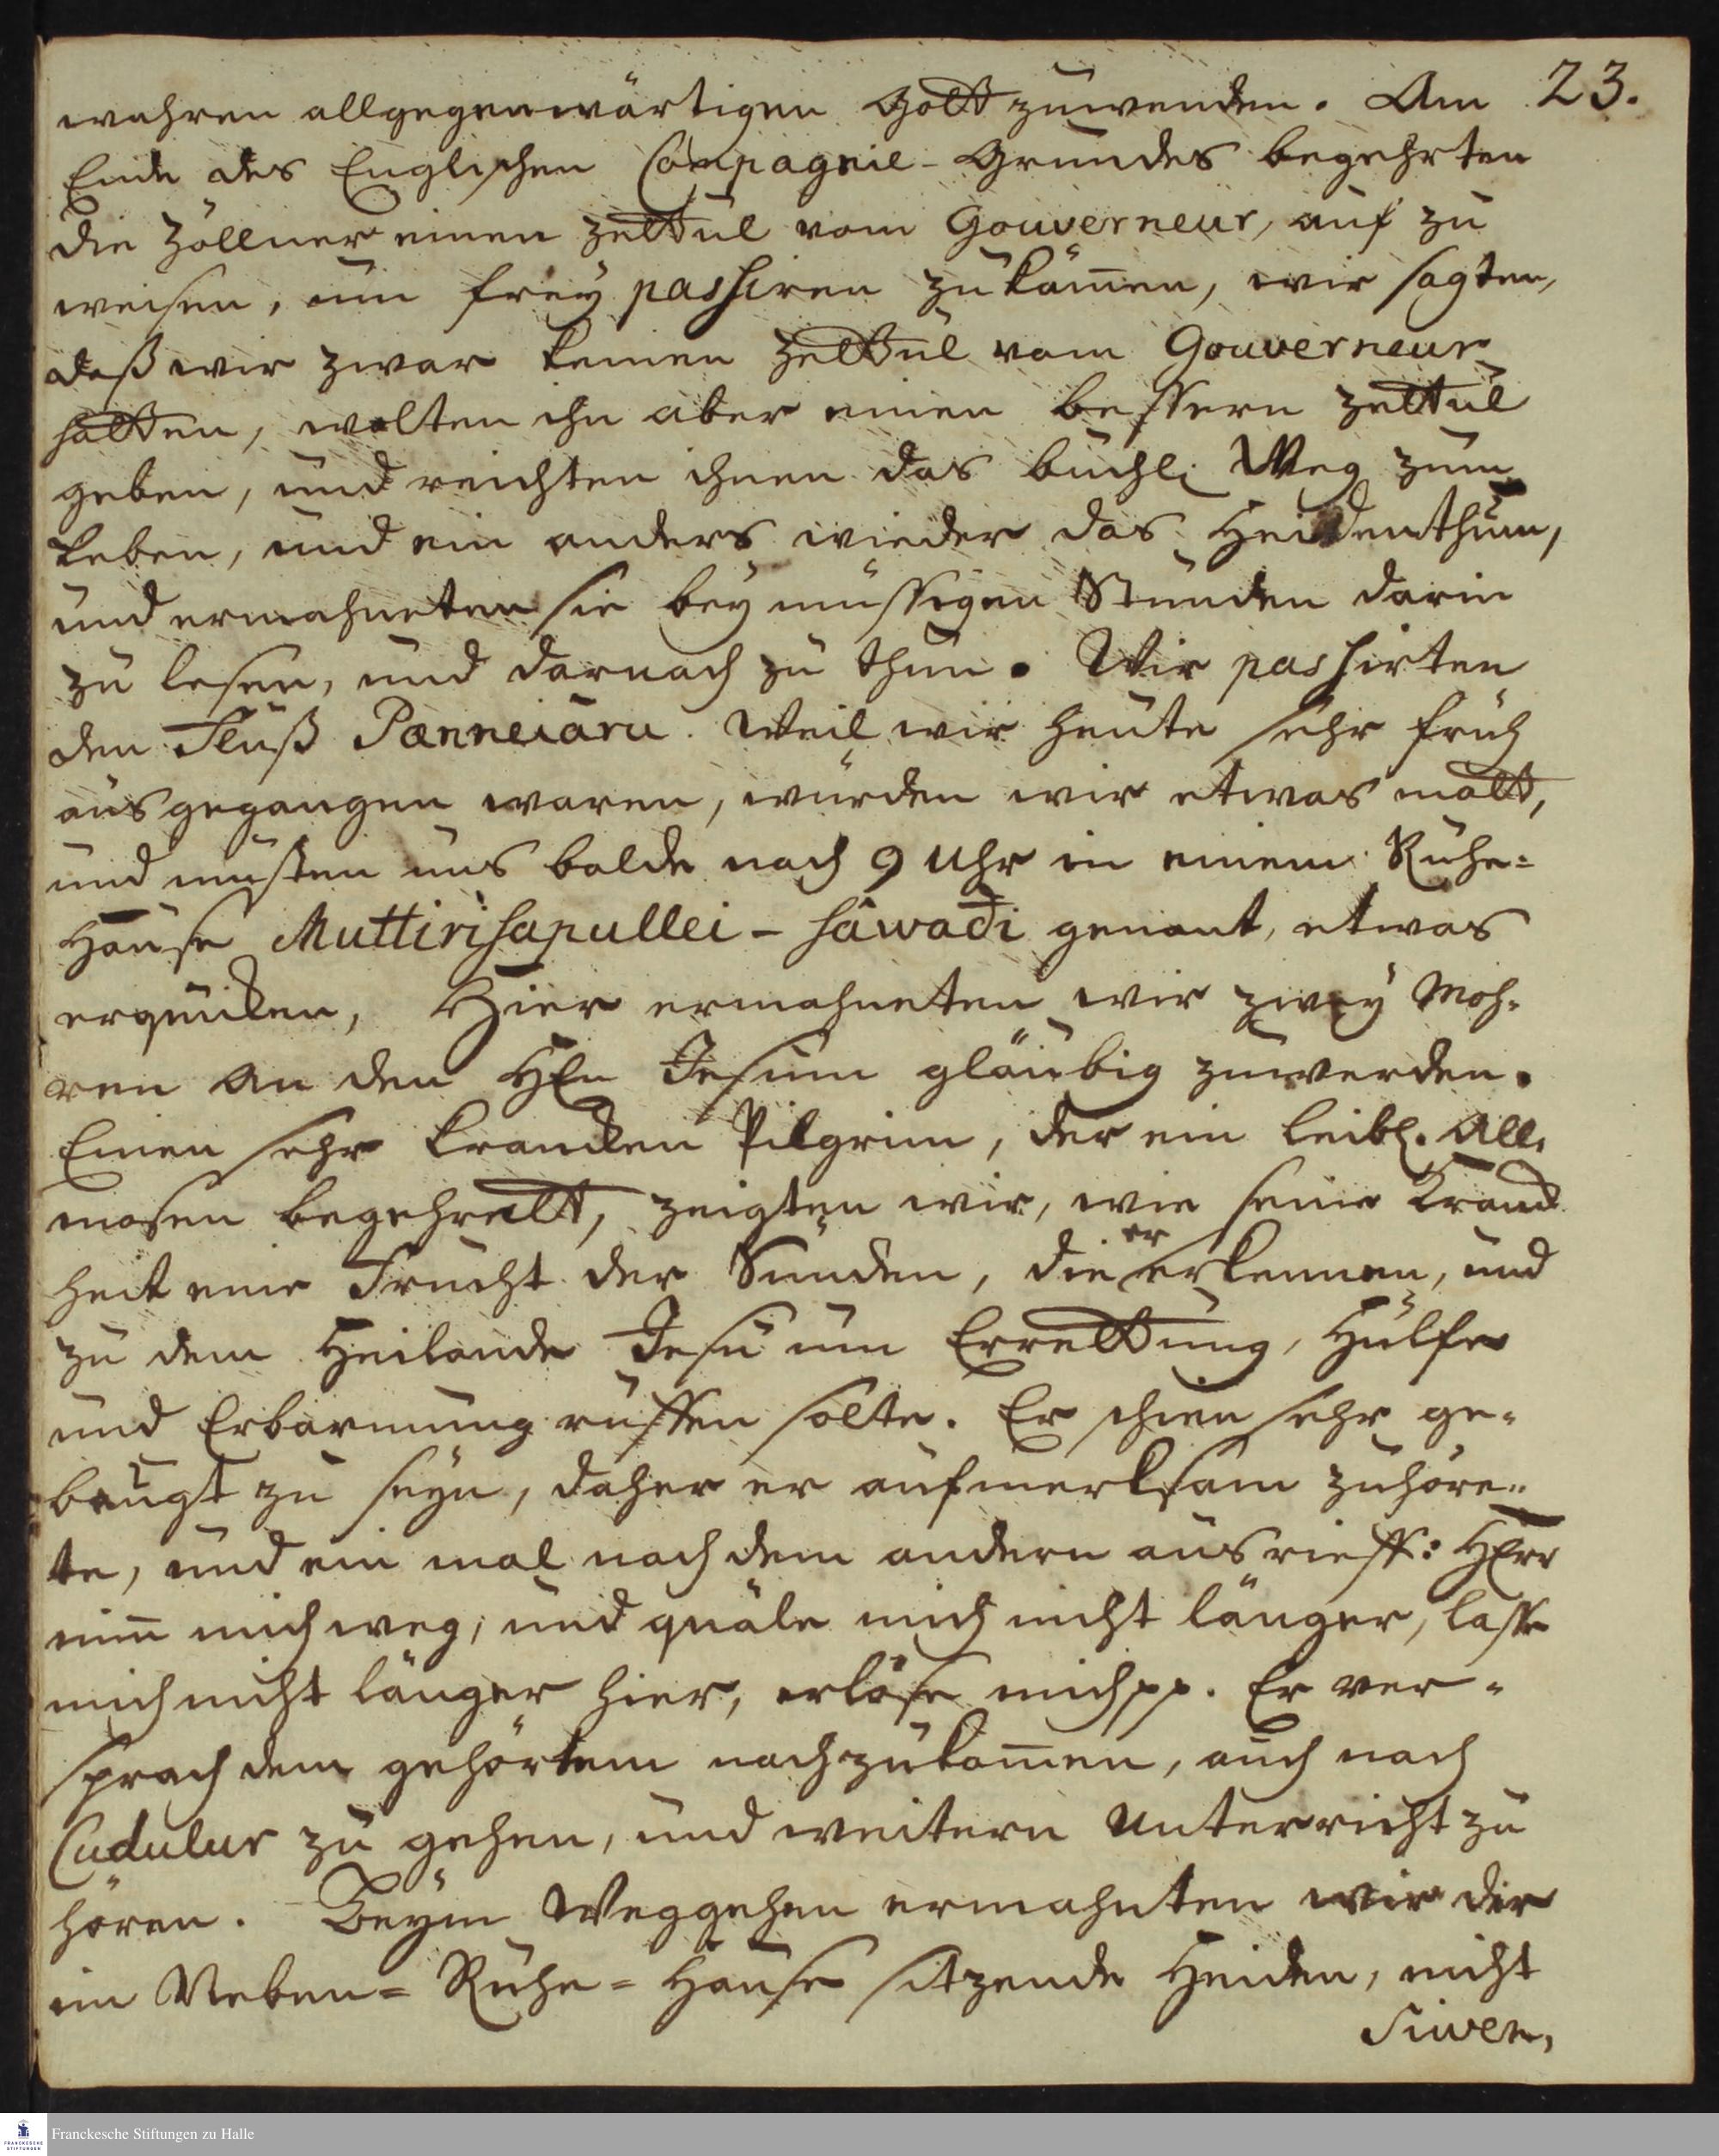 23.
wahren allgegenwärtigen Gott zuwenden. Am
Ende des Englischen Compagnie-Grundes begehrten
die Zöllner einen Zettul vom Gouverneur, auf zu
weisen, um frey passiren zu kom̄en, wir sagten,
daß wir zwar keinen Zettul vom Gouverneur
hätten, wolten ihn aber einen bessern Zettul
geben, und reichten ihnen das büchl. Weg zum
Leben, und ein anders wieder das Heidenthum,
und ermahneten sie bey müssigen Stunden darin
zu lesen, und darnach zu thun. Wir passirten
den Fluß Pænneiaru. Weil wir heute sehr früh
ausgegangen waren, wurden wir etwas matt,
und musten uns balde nach 9 Uhr in einem Ruhe-
Hause Muttirisapullei-sâwadi genant, etwas
erquicken, Hier ermahneten wir zwey Moh-
ren an den HEn Jesum gläubig zuwerden.
Einen sehr krancken Pilgrim, der ein leibl. All-
mosen begehrett, zeigten wir, wie seine Kranck
heit eine Frucht der Sünden, die er erkennen, und
zu dem Heilande Jesu um Errettung, Hülfe
und Erbarmung ruffen solte. Er schien sehr ge-
beugt zu seyn, daher er aufmerksam zuhöre-
te, und ein mal nach dem andern ausrieff: HErr
nim̄ mich weg, und quäle mich nicht länger, lasse
mich nicht länger hier, erlöse mich pp. Er ver-
sprach dem gehörtem nachzukom̄en, auch nach
Cudulur zu gehen, und weitern Unterricht zu
hören. Beym Weggehen ermahnten wir die
im Neben-Ruhe-Hause sitzende Heiden, nicht
Siwen,
Franckesche Stiftungen zu Halle
FRANCKESCHE
STIFTUNGEN